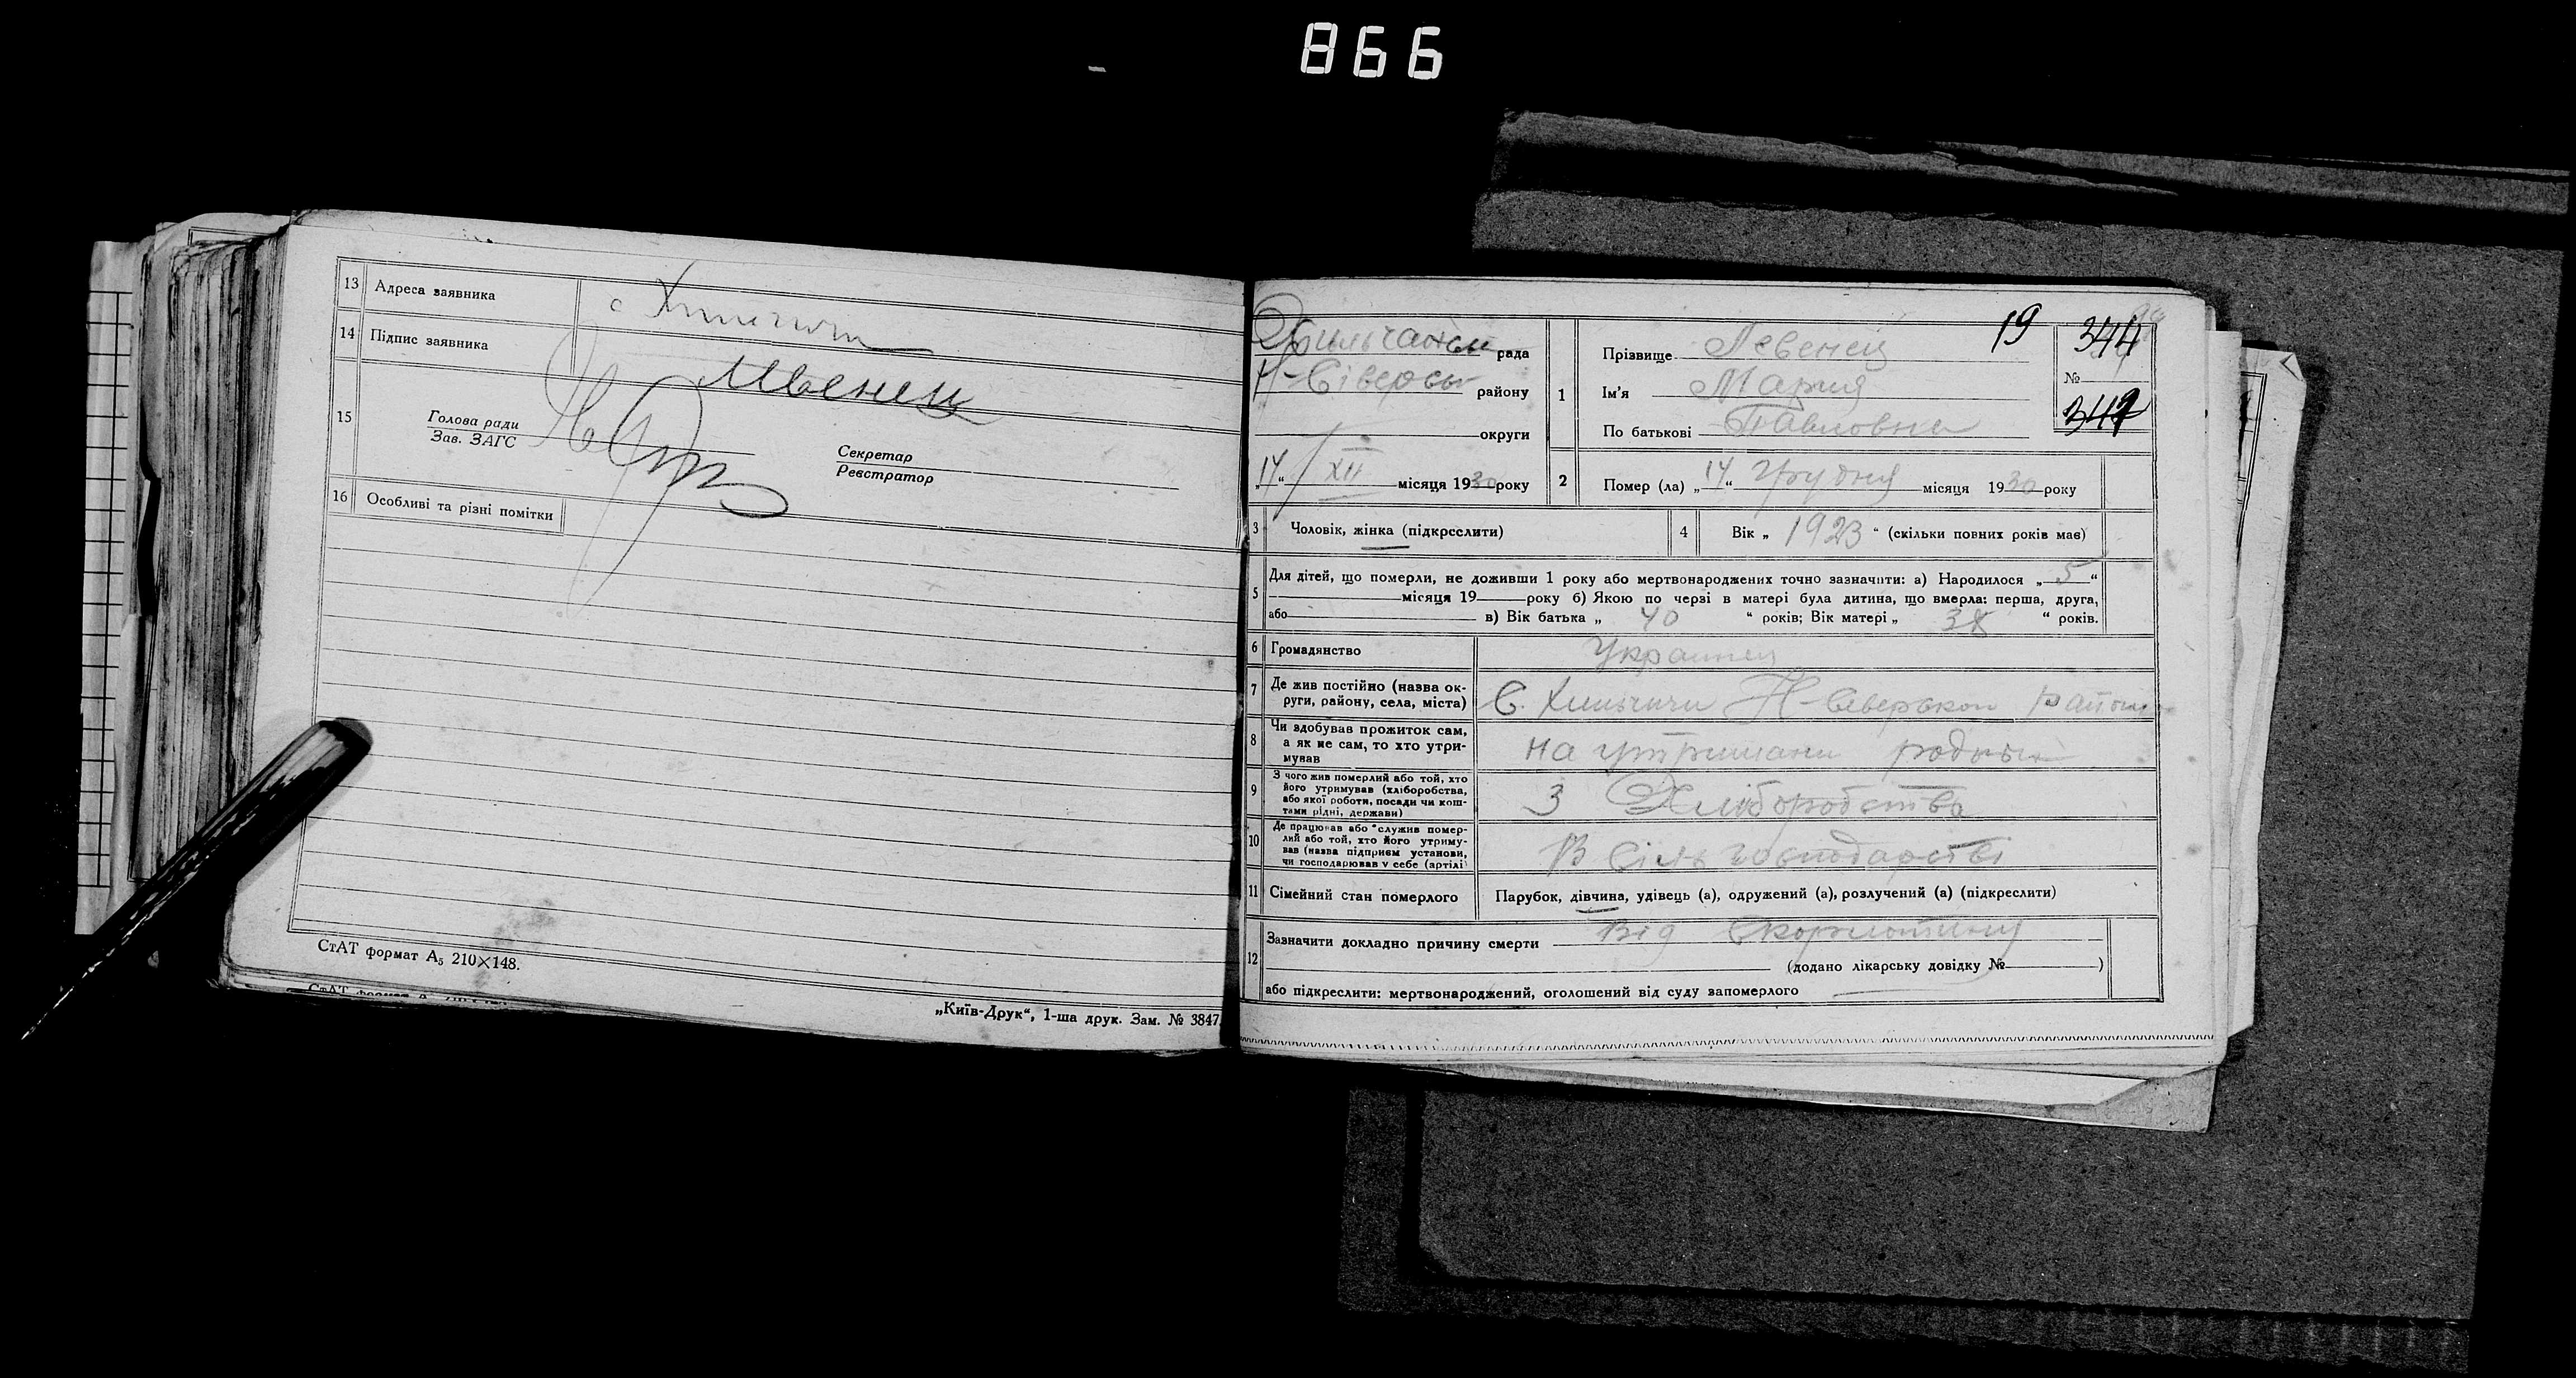 866
13 Адреса заявника с
14 Підпис заявника Левенец
15 Голова ради
Зав. ЗАГС
Секретар
Реєстратор
16 Особливі та різні помітки
СтАТ формат А₅ 210×148.
„Київ-Друк“, 1-ша друк. Зам. № 3847.
19
344
рада
Н-Сіверськ району
округи
„14“ XII місяця 1930 року
1 Прізвище Левенец
Ім'я Мария
По батькові Павловна
№
2 Помер (ла) „14“ Грудня місяця 1930 року
3 Чоловік, жінка (підкреслити)
4 Вік „ 1923 “ (скільки повних років мав)
5 Для дітей, що померли, не доживши 1 року або мертвонароджених точно зазначити: а) Народилося „ 5 “
місяця 19 року б) Якою по черзі в матері була дитина, що вмерла: перша, друга,
або в) Вік батька „ 40 “ років; Вік матері „ 38 “ років.
6 Громадянство
7 Де жив постійно (назва ок-
руги, району, села, міста)
С. Хильчичи Н-Северского
8 Чи здобував прожиток сам,
а як не сам, то хто утри-
мував
на утримани
9 З чого жив померлий або той, хто
його утримував (хліборобства,
або якої роботи, посади чи кош-
тами рідні, держави)
З Хліборобства
10 Де працював або служив помер-
лий або той, хто його утриму-
вав (назва підприєм установи,
чи господарював у себе (артілі)
В Сіль господарстві
11 Сімейний стан померлого
Парубок, дівчина, удівець (а), одружений (а), розлучений (а) (підкреслити)
12 Зазначити докладно причину смерти Від Скорлотини
(додано лікарську довідку № )
або підкреслити: мертвонароджений, оголошений від суду запомерлого